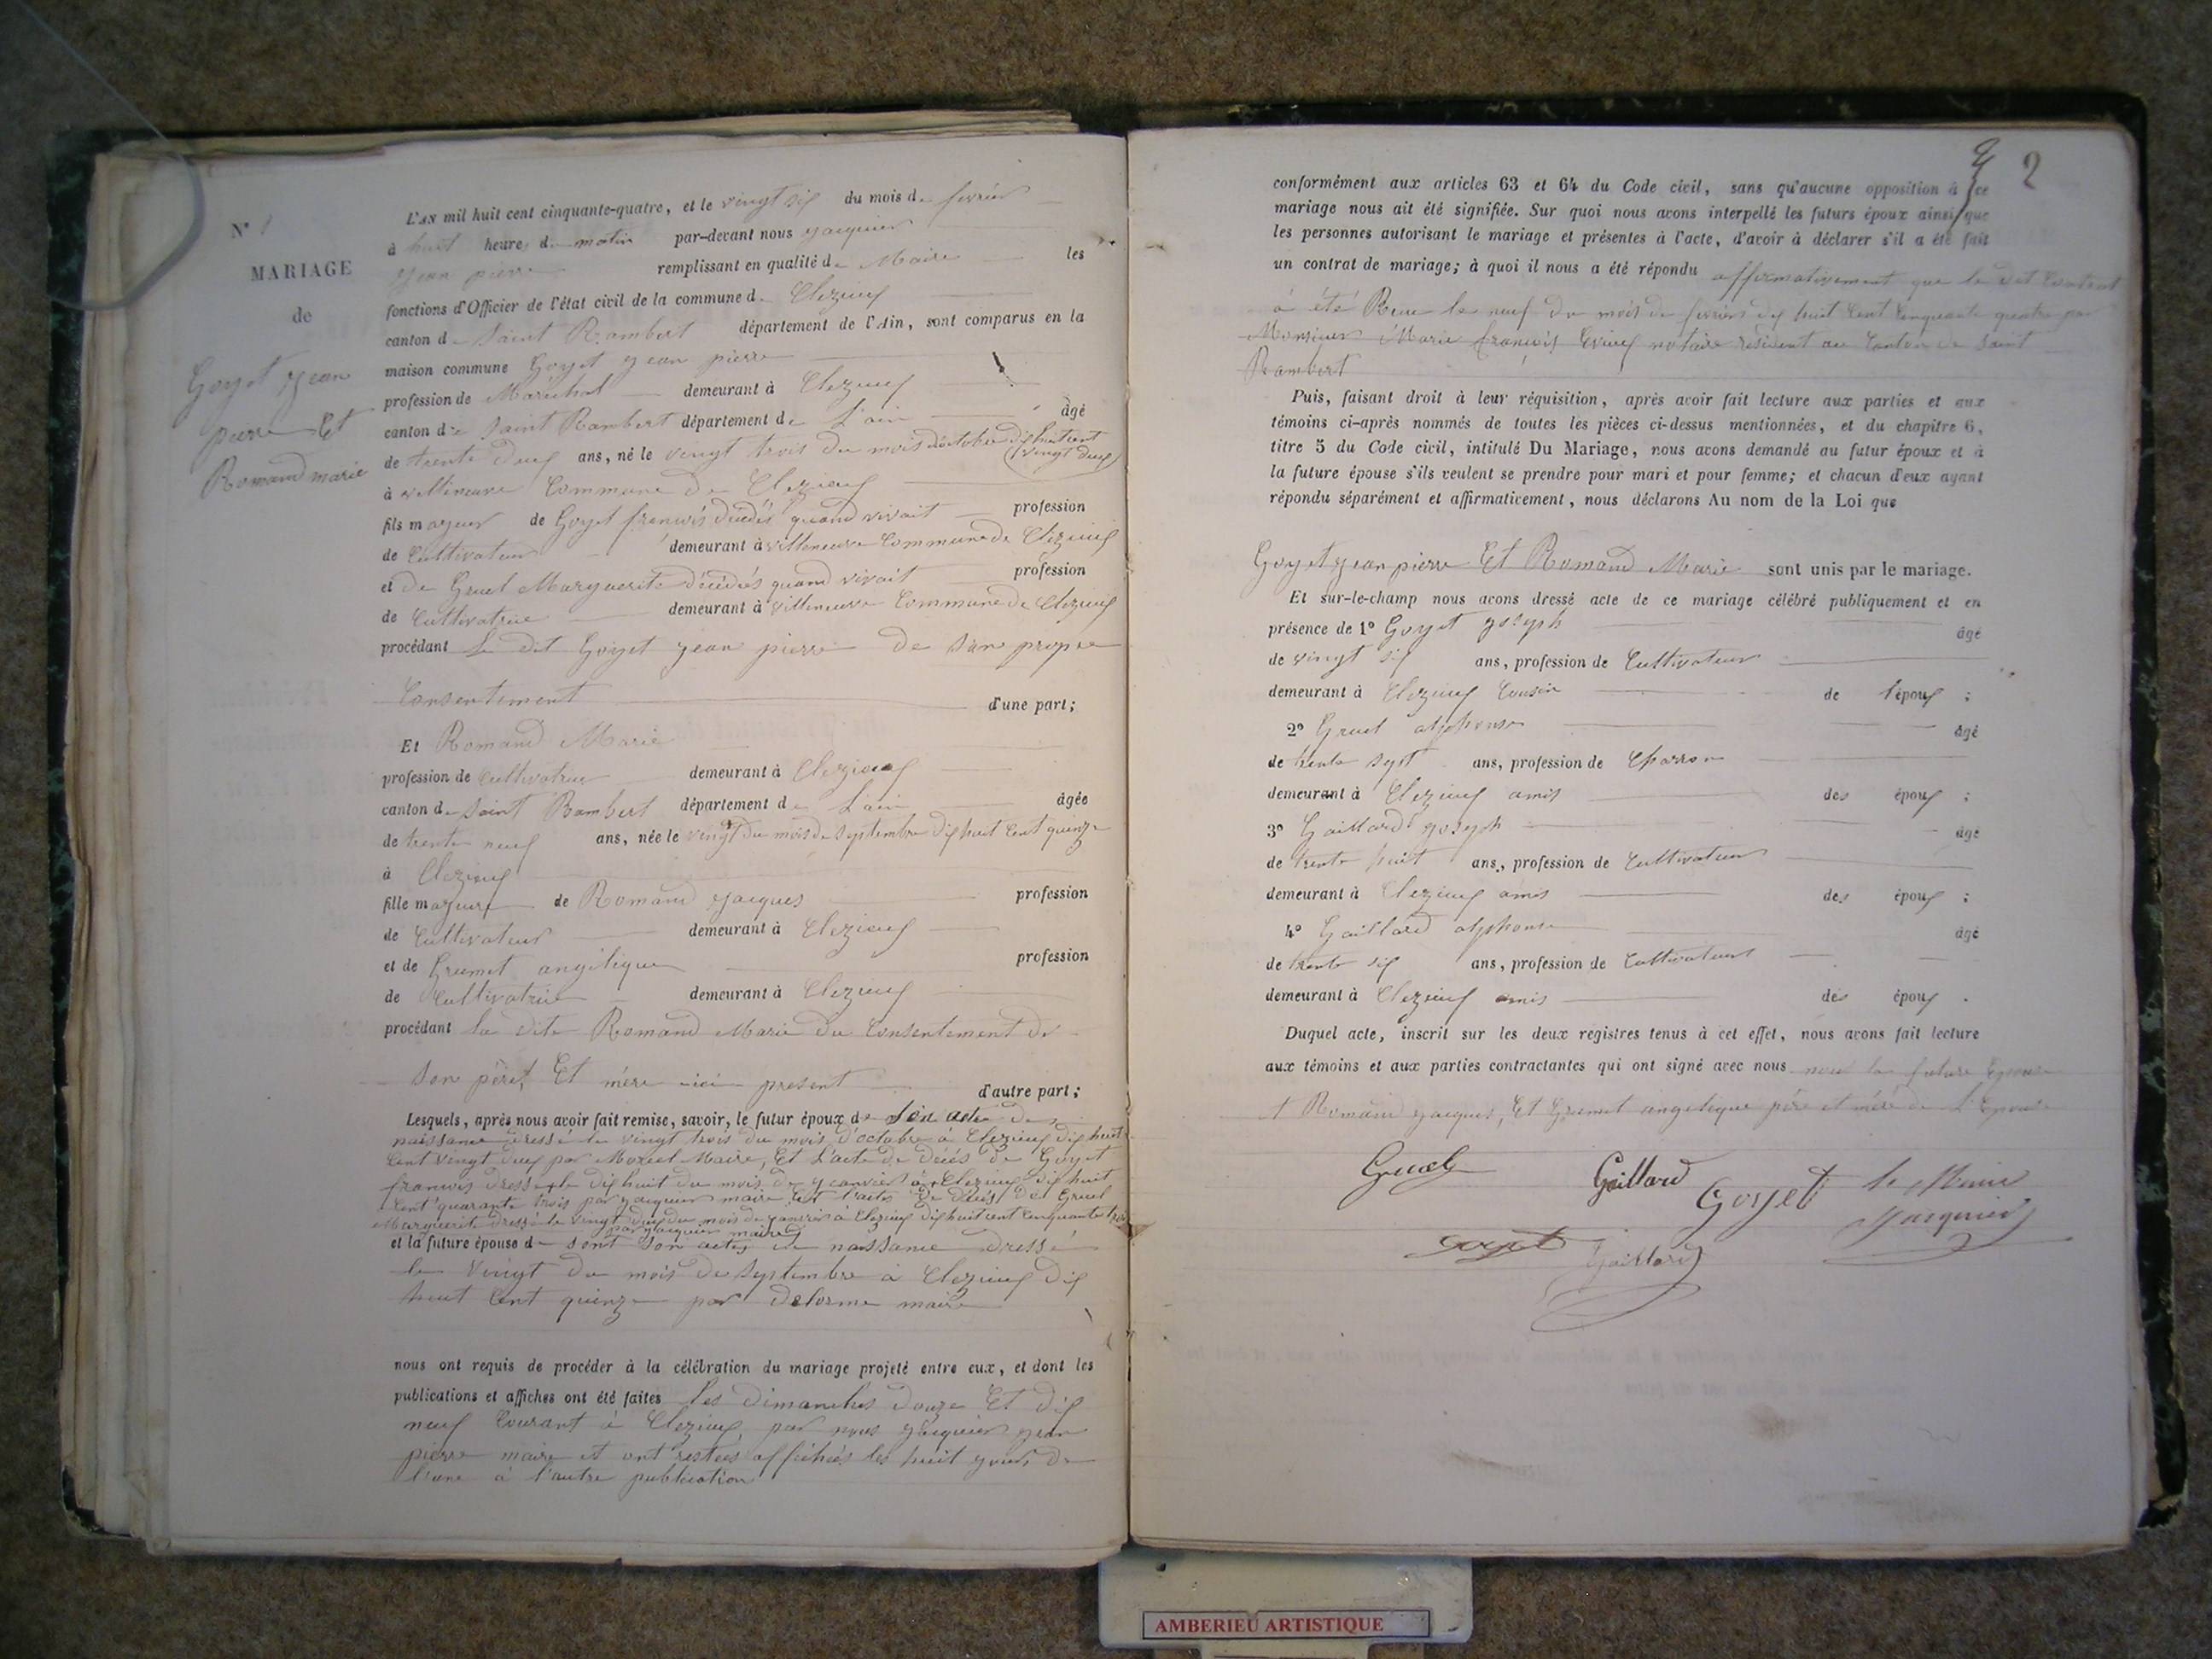 N° 1
MARIAGE
de
Goyet jean
pierre Et
Romand marie
L'AN mil huit cent cinquante-quatre, et le vingt six du mois de fevrier
à huit heures du matin par-devant nous jacquier
jean pierre remplissant en qualité de Maire les
fonctions d'Officier de l'état civil de la commune de Clezieux
canton de Saint Rambert département de l'Ain, sont comparus en la
maison commune Goyet jean pierre
profession de Maréchal demeurant à Clezieux
canton de Saint Rambert département de L'ain âgé
de trente deux ans, né le vingt trois du mois d'octobre dix huit cent
(vingt deux)
à villeneuve Commune de Clezieux
fils majeur de Goyet francois décédés quand vivait profession
de Cultivateur demeurant à villeneuve Commune de Clezieux
et de Gruel Marguerite décédés quand vivait profession
de Cultivatrice demeurant à villeneuve Commune de Clezieux
procédant Le dit Goyet jean pierre de son propre
Consentement d'une part;
Et Romand Marie
profession de Cultivatrice demeurant à Clezieux
canton de Saint Rambert département de L'ain âgée
de trente neuf ans, née le vingt du mois de septembre dix huit Cent quinze
à Clezieux
fille majeure de Romand jacques profession
de Cultivateur demeurant à Clezieux
et de Grumet angelique profession
de Cultivatrice demeurant à Clezieux
procédant la dite Romand Marie du Consentement de
son père, Et mère ici present d'autre part;
Lesquels, après nous avoir fait remise, savoir, le futur époux de son acte de
naissance dressé le vingt trois du mois d'octobre à Clezieux dix huit
Cent vingt deux par Morel Maire, Et L'acte de décés de Goyet
francois dressé le dix huit du mois de janvier à Clezieux dix huit
Cent quarante trois par jacquier maire Et l'acte de décés de Gruel
Marguerite dressé le vingt deux du mois de janvier à Clezieux dix huit cent cinquante trois
par jacquier maire
et la future épouse de sont son acte de naissance dressé
le Vingt du mois de Septembre à Clezieux dix
huit Cent quinze par Delorme maire
nous ont requis de procéder à la célébration du mariage projeté entre eux, et dont les
publications et affiches ont été faites les dimanches douze Et dix
neuf Courant à Clezieux, par nous jacquier jean
pierre maire et ont restées affichés les huit jours de
l'une à l'autre publication
2
conformément aux articles 63 et 64 du Code civil, sans qu'aucune opposition à ce
mariage nous ait été signifiée. Sur quoi nous avons interpellé les futurs époux ainsi que
les personnes autorisant le mariage et présentes à l'acte, d'avoir à déclarer s'il a été fait
un contrat de mariage; à quoi il nous a été répondu affirmativement que le dit Contrat
à été Recu le neuf du mois de fevrier dix huit Cent Cinquante quatre par
Monsieur Marie francois notaire résident au Canton de Saint
Rambert
Puis, faisant droit à leur réquisition, après avoir fait lecture aux parties et aux
témoins ci-après nommés de toutes les pièces ci-dessus mentionnées, et du chapitre 6,
titre 5 du Code civil, intitulé Du Mariage, nous avons demandé au futur époux et à
la future épouse s'ils veulent se prendre pour mari et pour femme; et chacun d'eux ayant
répondu séparément et affirmativement, nous déclarons Au nom de la Loi que
Goyet jean pierre Et Romand Marie sont unis par le mariage.
Et sur-le-champ nous avons dressé acte de ce mariage célébré publiquement et en
présence de 1° Goyet joseph âgé
de vingt six ans, profession de Cultivateur
demeurant à Clezieux Cousin de l'époux ;
2° Gruel alphonse âgé
de trente sept ans, profession de Charron
demeurant à Clezieux amis des époux ;
3° Gaillard joseph âgé
de trente huit ans, profession de Cultivateur
demeurant à Clezieux amis des époux ;
4° Gaillard alphonse âgé
de trente six ans, profession de Cultivateur
demeurant à Clezieux amis des époux .
Duquel acte, inscrit sur les deux registres tenus à cet effet, nous avons fait lecture
aux témoins et aux parties contractantes qui ont signé avec nous non la future Epouse
et Romand jacques, Et Grumet angelique père et mère de L'Epouse
Gruel
Gaillard
Goyet
le Maire
Jacquier
Goyet
Gaillard
AMBERIEU ARTISTIQUE